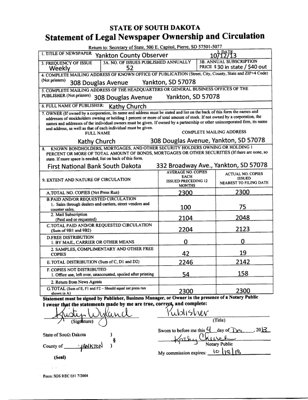 STATE OF SOUTH DAKOTA
Statement of Legal Newspaper Ownership and Circulation
Return to: Secretary of State, 500 E. Capitol, Pierre, SD 57501-5077
1. TITLE OF NEWSPAPER Yankton County Observer 10/12/13
3. FREQUENCY OF ISSUE Weekly
3A. NO. OF ISSUES PUBLISHED ANNUALLY 52
3B. ANNUAL SUBSCRIPTION PRICE $30 in state / $40 out
4. COMPLETE MAILING ADDRESS OF KNOWN OFFICE OF PUBLICATION (Street, City, County, State and ZIP+4 Code)
(Not printers) 308 Douglas Avenue Yankton, SD 57078
5. COMPLETE MAILING ADDRESS OF THE HEADQUARTERS OR GENERAL BUSINESS OFFICES OF THE
PUBLISHER (Not printers) 308 Douglas Avenue Yankton, SD 57078
6. FULL NAME OF PUBLISHER: Kathy Church
7. OWNER (If owned by a corporation, its name and address must be stated and list on the back of this form the names and
addresses of stockholders owning or holding 1 percent or more of total amount of stock. If not owned by a corporation, the
names and addresses of the individual owners must be given. If owned by a partnership or other unincorporated firm, its name
and address, as well as that of each individual must be given.
FULL NAME COMPLETE MAILING ADDRESS
Kathy Church 308 Douglas Avenue, Yankton, SD 57078
8. KNOWN BONDHOLDERS, MORTGAGES, AND OTHER SECURITY HOLDERS OWNING OR HOLDING 1
PERCENT OR MORE OF TOTAL AMOUNT OF BONDS, MORTGAGES OR OTHER SECURITIES (If there are none, so
state. If more space is needed, list on back of this form)
First National Bank South Dakota 332 Broadway Ave., Yankton, SD 57078
9. EXTENT AND NATURE OF CIRCULATION
AVERAGE NO. COPIES EACH ISSUED PRECEDING 12 MONTHS
ACTUAL NO. COPIES ISSUED NEAREST TO FILING DATE
A. TOTAL NO. COPIES (Net Press Run) 2300 2300
B. PAID AND/OR REQUESTED CIRCULATION
1. Sales through dealers and carriers, street vendors and
counter sales. 100 75
2. Mail Subscription
(Paid and or requested) 2104 2048
C. TOTAL PAID AND/OR REQUESTED CIRCULATION
(Sum of 9B1 and 9B2) 2204 2123
D. FREE DISTRIBUTION
1. BY MAIL, CARRIER OR OTHER MEANS 0 0
2. SAMPLES, COMPLIMENTARY AND OTHER FREE
COPIES 42 19
E. TOTAL DISTRIBUTION (Sum of C, D1 and D2) 2246 2142
F. COPIES NOT DISTRIBUTED
1. Office use, left over, unaccounted, spoiled after printing 54 158
2. Return from News Agents
G. TOTAL (Sum of E, F1 and F2 – Should equal net press run
shown in A) 2300 2300
Statement must be signed by Publisher, Business Manager, or Owner in the presence of a Notary Public
I swear that the statements made by me are true, correct, and complete:
Publisher
(Signature) (Title)
State of South Dakota )
County of Yankton )
Sworn to before me this day of
Kathy Church
Notary Public
(Seal)
My commission expires: